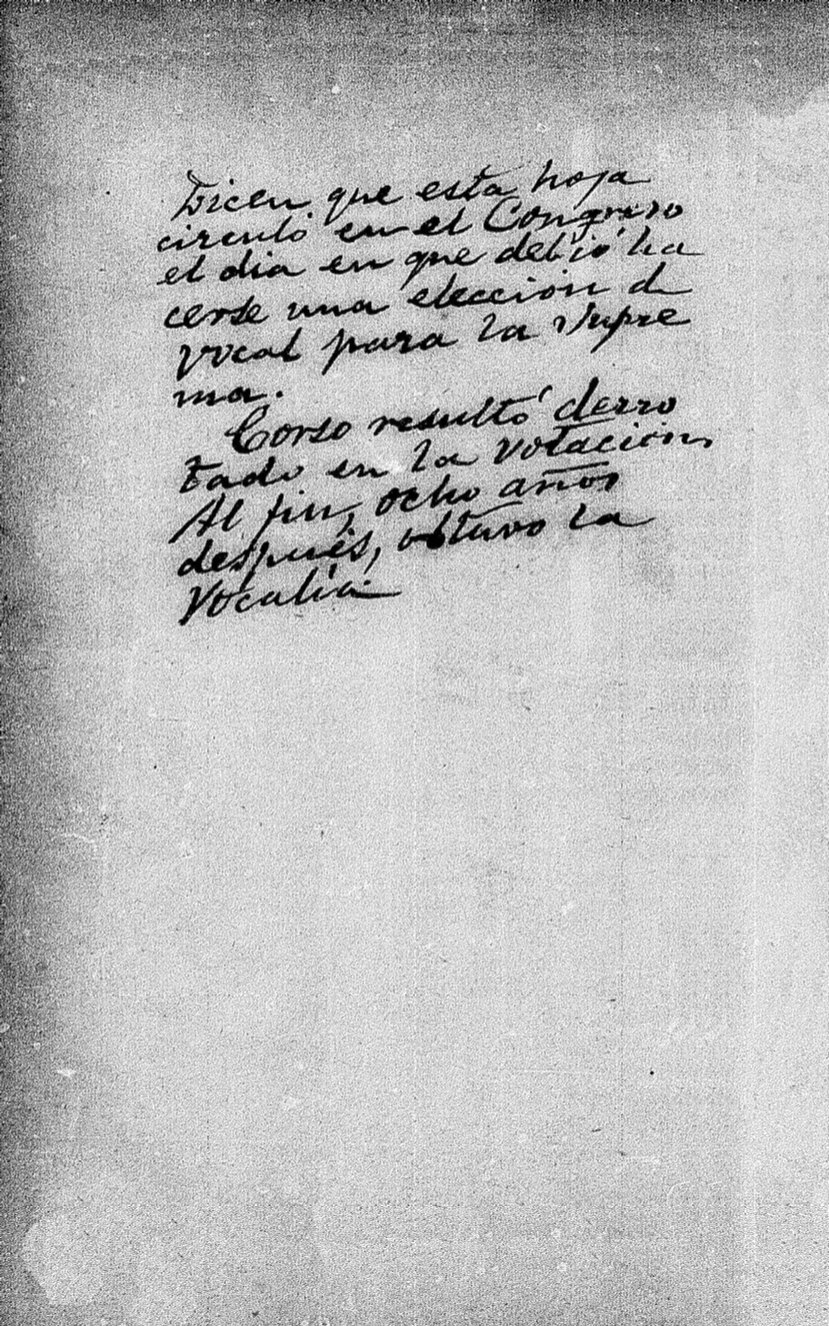 Dicen que esta hoja
circuló en el Congreso
el dia en que debió ha
cerse una eleccion de
vocal para la Supre
ma.
Corso resultó derro
tado en la votacion.
Al fin, ocho años
después, obtuvo la
Vocalía.